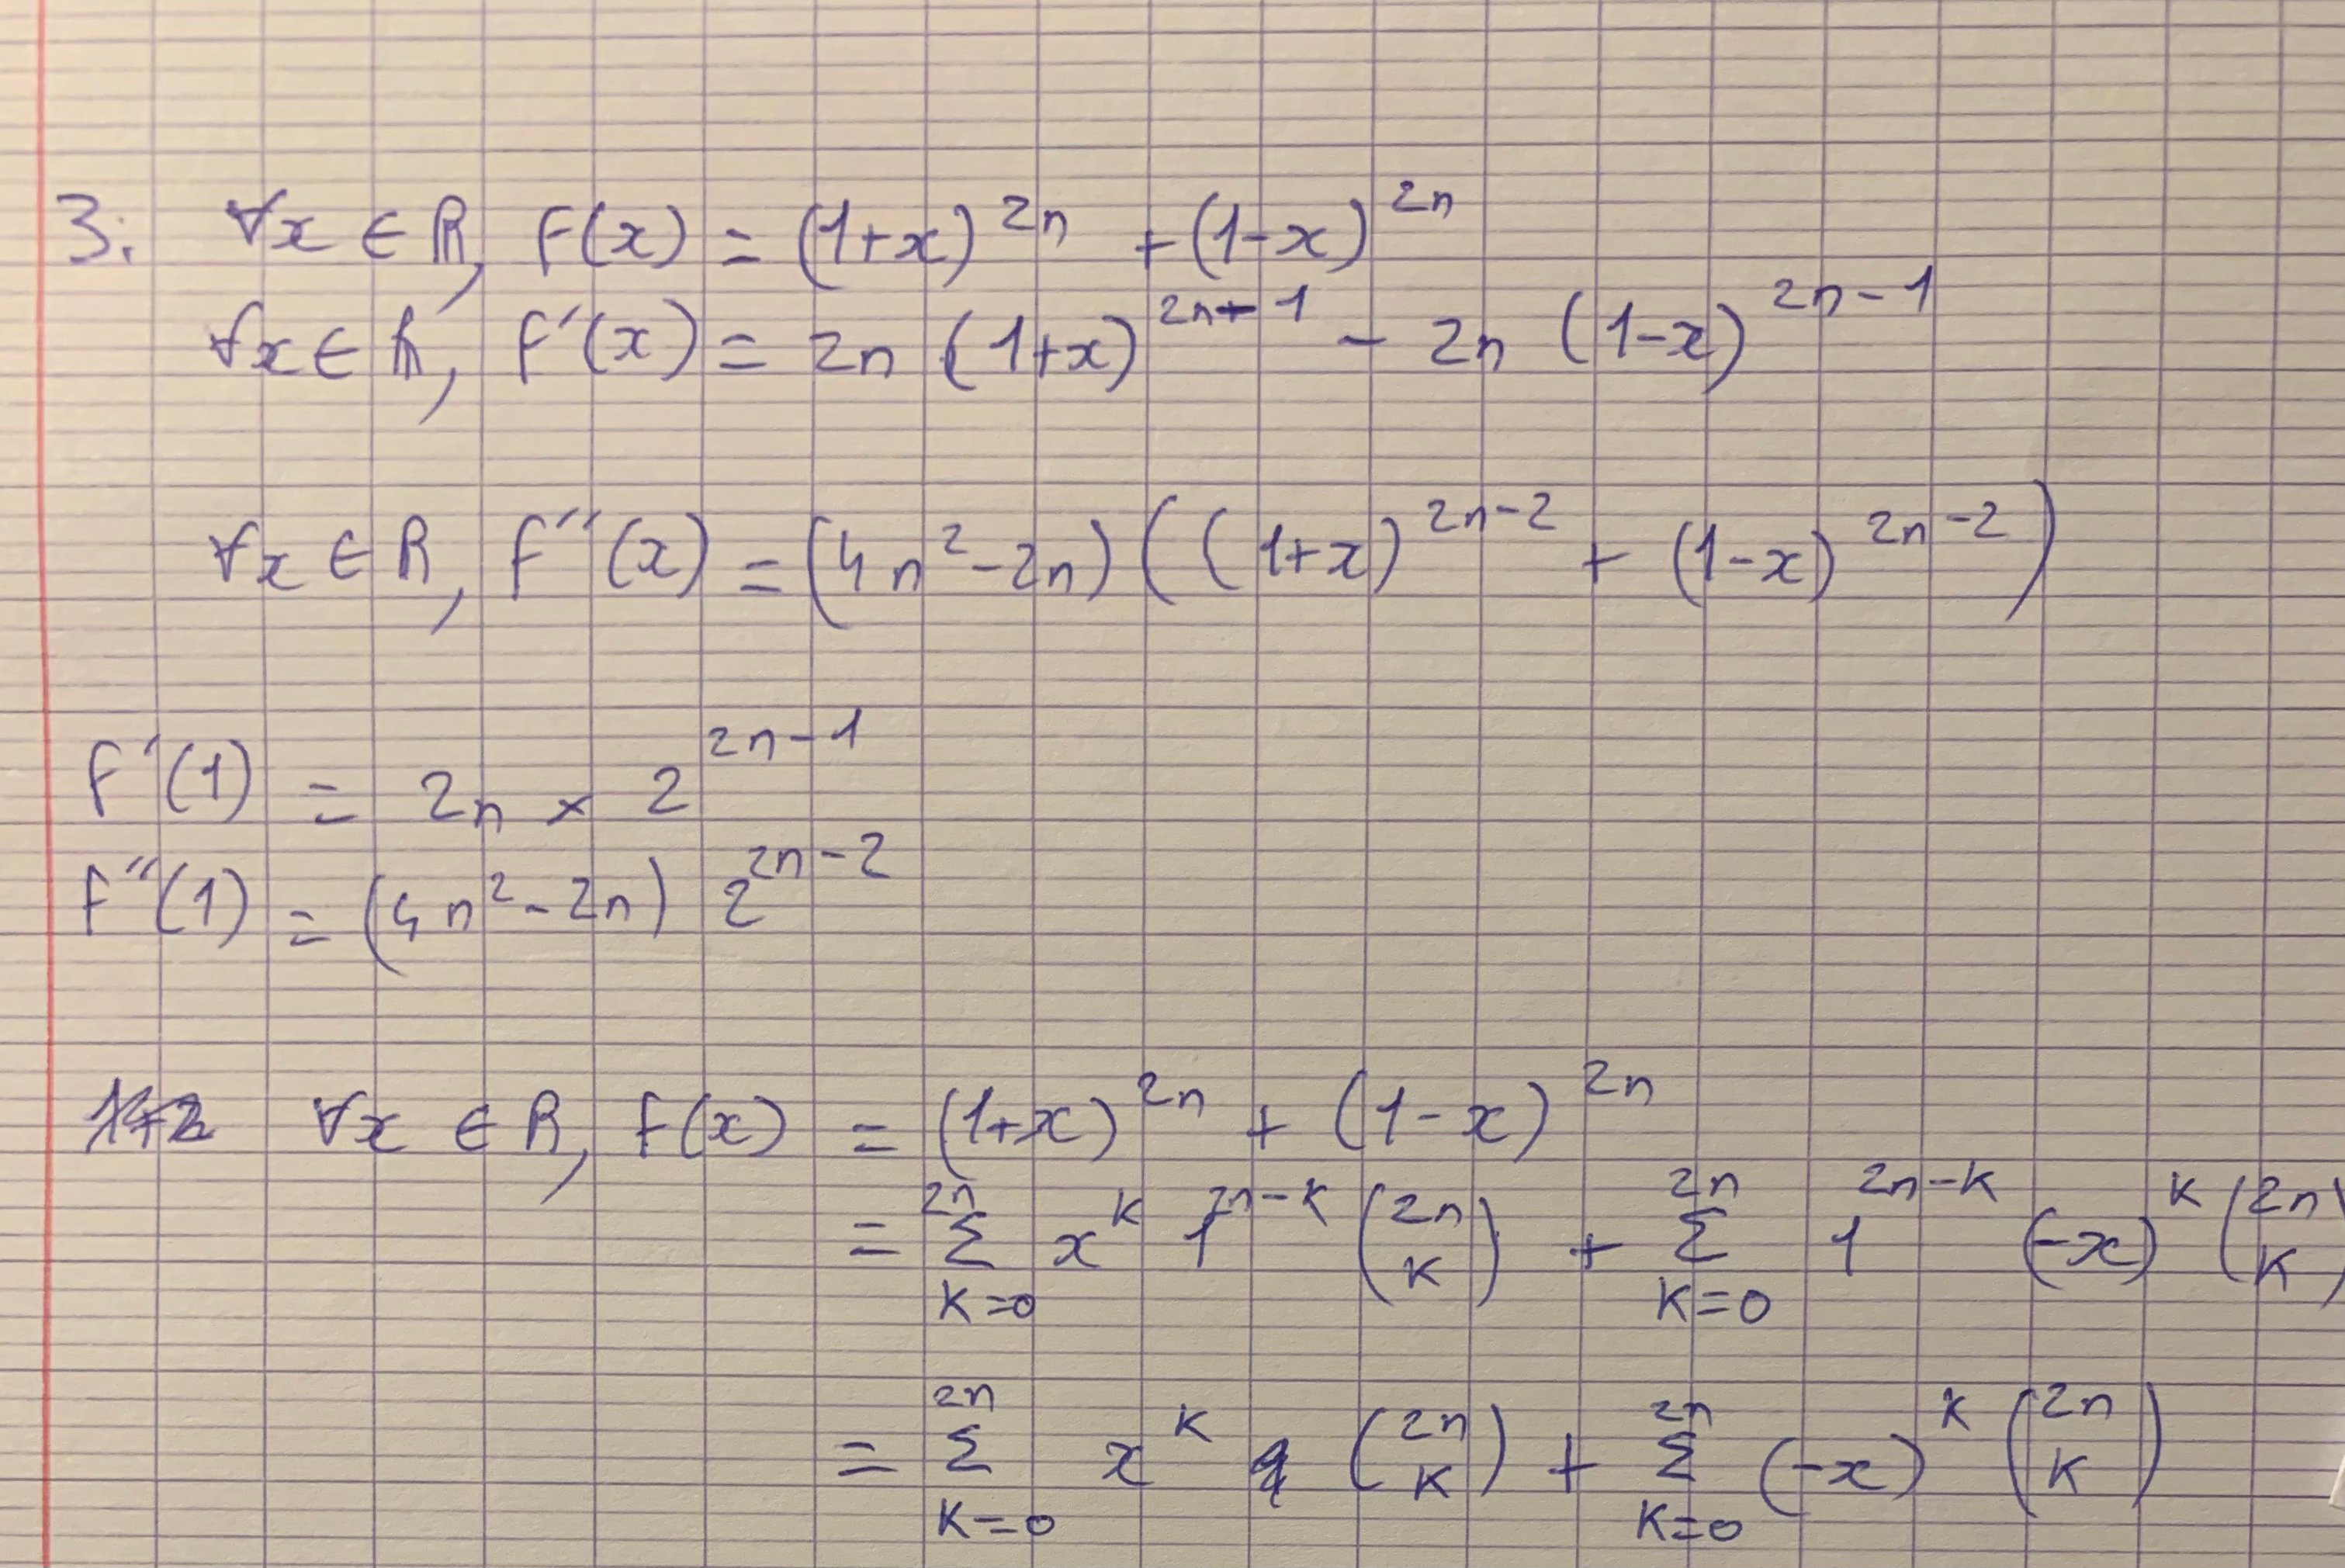 3. ∀x ∈ ℝ, f(x) = (1+x)^{2n} + (1-x)^{2n}
∀x ∈ ℝ, f'(x) = 2n (1+x)^{2n-1} - 2n (1-x)^{2n-1}
∀x ∈ ℝ, f''(x) = (4n²-2n) ((1+x)^{2n-2} + (1-x)^{2n-2})
f'(1) = 2n × 2^{2n-1}
f''(1) = (4n²-2n) 2^{2n-2}
∀x ∈ ℝ, f(x) = (1+x)^{2n} + (1-x)^{2n}
= \sum_{k=0}^{2n} x^k 1^{2n-k} \binom{2n}{k} + \sum_{k=0}^{2n} 1^{2n-k} (-x)^k \binom{2n}{k}
= \sum_{k=0}^{2n} x^k \binom{2n}{k} + \sum_{k=0}^{2n} (-x)^k \binom{2n}{k}